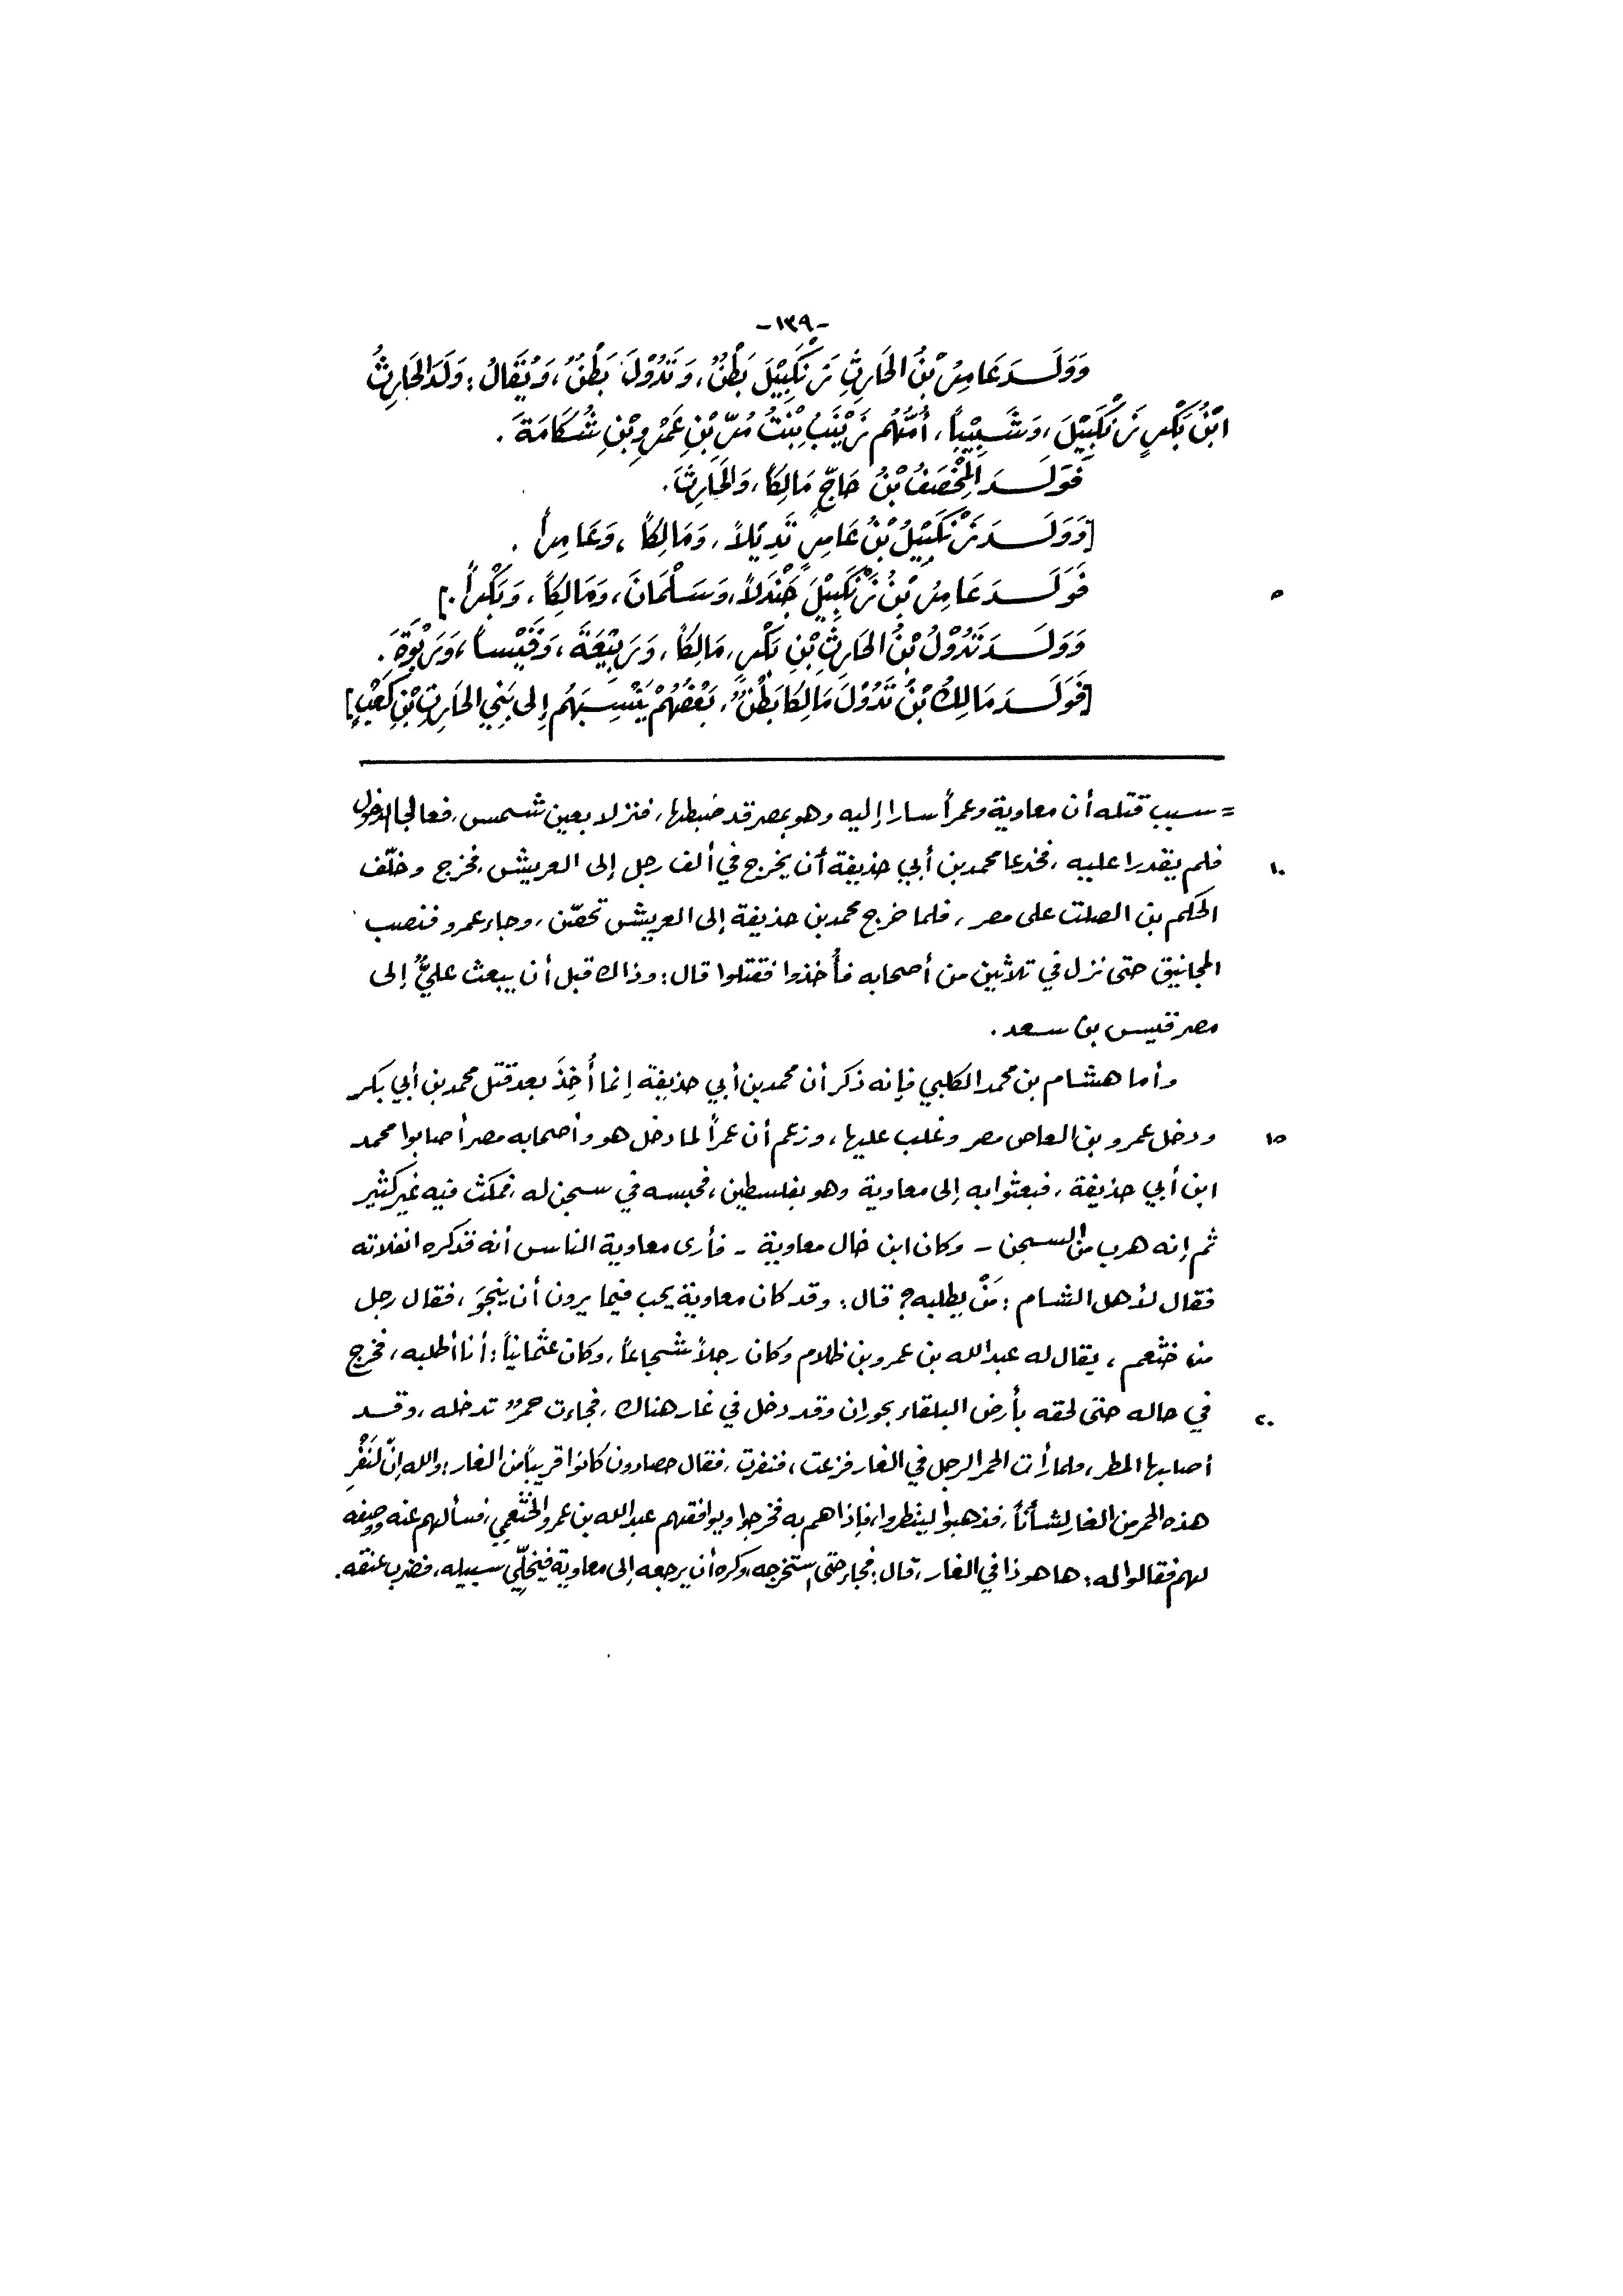 -١٣٩-
وَوَلَــدَ عَامِرُ بْنُ الحَارِثِ زَنْكَبِيْلَ بَطْنٌ، وَتَدُوْلَ بَطْنٌ، وَيُقَالُ: وَلَدَ الحَارِثُ
ابْنُ بَكْرٍ زَنْكَبِيْلَ، وَشَبِيْبَاً، أُمُّهُم زَيْنَبُ بِنْتُ مُرِّ بْنِ عَمْرِو بْنِ شُكَامَةَ.
فَوَلَــدَ المِخْصَفُ بْنُ حَاجٍّ مَالِكَاً، وَالحَارِثَ.
[وَوَلَــدَ زَنْكَبِيْلُ بْنُ عَامِرٍ تَدِيْلاً، وَمَالِكَاً، وَعَامِراً.
فَوَلَــدَ عَامِرُ بْنُ زَنْكَبِيْلَ جَنْدَلاً، وَسَلْمَانَ، وَمَالِكَاً، وَبَكْراً.]
٥
وَوَلَــدَ تَدُوْلُ بْنُ الحَارِثِ بْنِ بَكْرٍ، مَالِكَاً، وَرَبِيْعَةَ، وَقَيْسَاً، وَرَبْوَةَ.
[فَوَلَــدَ مَالِكُ بْنُ تَدُوْلَ مَالِكَاً بَطْنٌ، بَعْضُهُمْ يَنْسِبَهُم إِلى بَنِي الحَارِثِ بْنِ كَعْبٍ]
= سبب قتله أن معاوية وعمراً سارا إليه وهو بمصر قد ضبطها، فنزلا بعين شمس، فعالجا الدخول
فلم يقدرا عليه، فخدعا محمد بن أبي حذيفة أن يخرج في ألف رجل إلى العريش، فخرج وخلّف
١٠
الحكم بن الصلت على مصر، فلما خرج محمد بن حذيفة إلى العريش تحصّن، وجاء عمرو فنصب
المجانيق حتى نزل في ثلاثين من أصحابه فأُخذوا فقتلوا قال: وذاك قبل أن يبعث عليٌّ إلى
مصر قيس بن سعد.
وأما هشام بن محمد الكلبي فإنه ذكر أن محمد بن أبي حذيفة إنما أُخِذَ بعد قتل محمد بن أبي بكر
ودخل عمرو بن العاص مصر وغلب عليها، وزعم أن عمراً لما دخل هو وأصحابه مصر أصابوا محمد
١٥
ابن أبي حذيفة، فبعثوا به إلى معاوية وهو بفلسطين، فحبسه في سجن له، فمكث فيه غير كثير
ثم إنه هرب من السجن - وكان ابن خال معاوية - فأرى معاوية الناس أنه قد كره انفلاته
فقال لأهل الشام: مَنْ يطلبه؟ قال: وقد كان معاوية يحب فيما يرون أن ينجوَ، فقال رجل
من خثعم، يقال له عبد الله بن عمرو بن ظلام وكان رجلاً شجاعاً، وكان عثمانياً: أنا أطلبه، فخرج
في حاله حتى لحقه بأرض البلقاء بحوران وقد دخل في غار هناك، فجاءت حمرٌ تدخله، وقــد
٢٠
أصابها المطر، فلما رأت الحمر الرجل في الغار فزعت، فنفرت، فقال حصادون كانوا قريباً من الغار: والله إنّ لنَفْرِ
هذه الحمر من الغار لشأناً، فذهبوا لينظروا، فإذا هم به فخرجوا ويوافقهم عبد الله بن عمرو الخثعمي، فسألهم عنه ووصفه
لهم فقالوا له: ها هو ذا في الغار، قال: فجاء حتى استخرجه، وكره أن يرجعه إلى معاوية فيخلّي سبيله، فضرب عنقه.